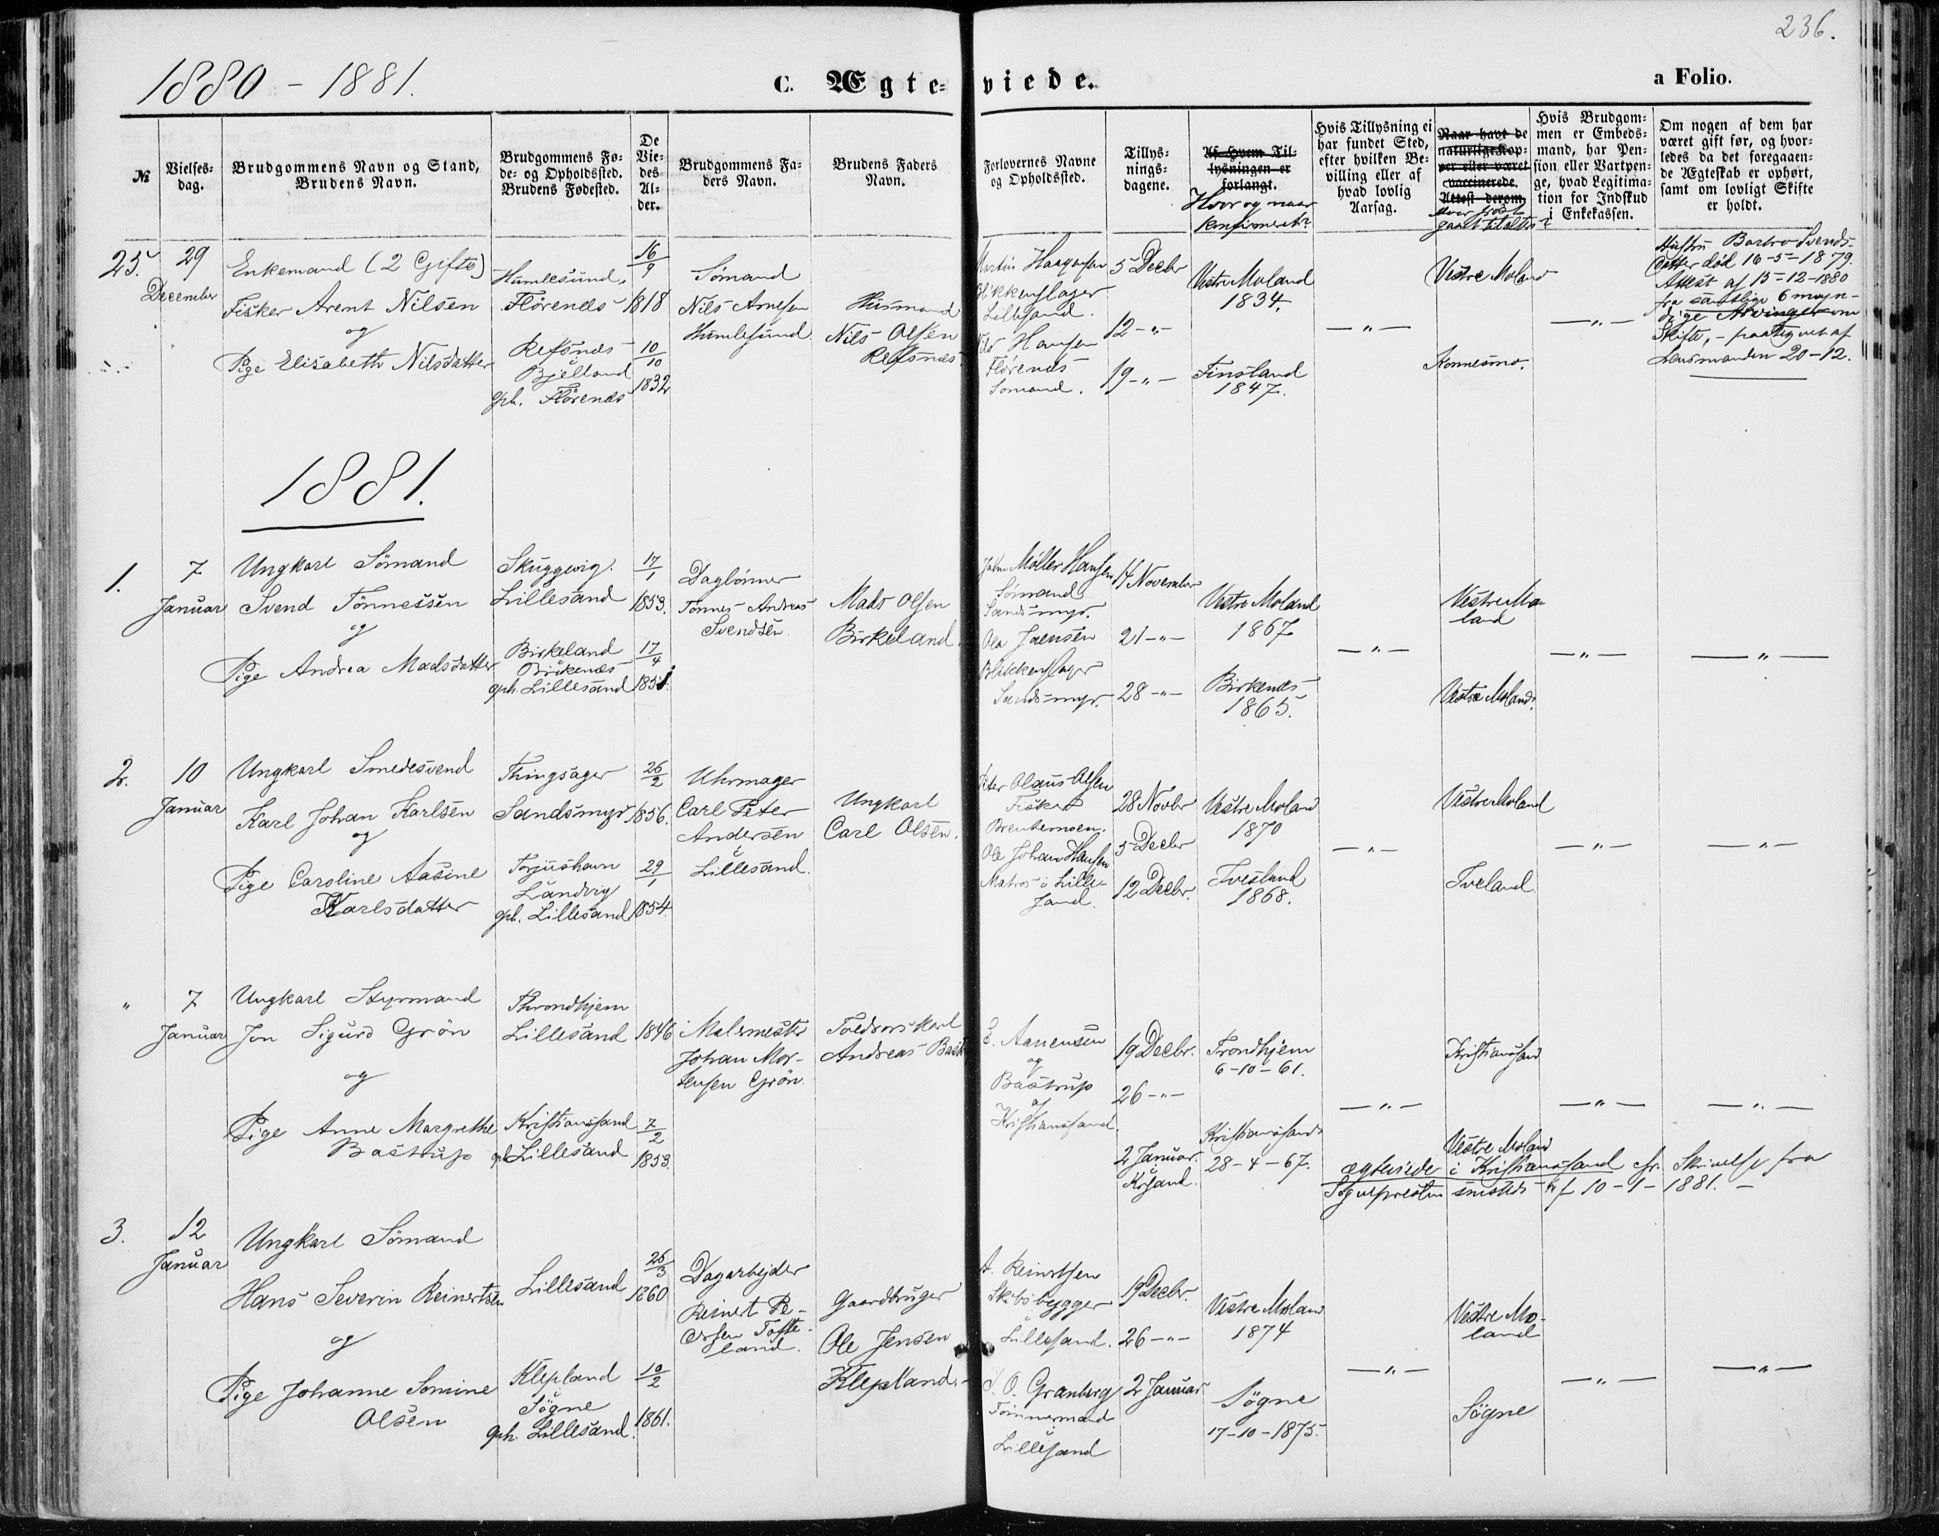 236.
1880 - 1881.
C. Ægte-
viede.
a Folio.
№
Vielses-
dag.
Brudgommens Navn og Stand,
Brudens Navn.
Brudgommens Fø-
de- og Opholdssted.
Brudens Fødested.
De
Vie-
des
Al-
der.
Brudgommens Fa-
ders Navn.
Brudens Faders
Navn.
Forlovernes Navne
og Opholdssted.
Tillys-
nings-
dagene.
Af Hvem Til-
lysningen er
forlangt.
Hvor og naar
konfirmeret?
Hvis Tillysning ei
har fundet Sted,
efter hvilken Be-
villing eller af
hvad lovlig
Aarsag.
Naar havt de
naturlige Kop-
per eller været
vaccinerede.
Attest derom.
Hvor sidst
gaaet til alters?
Hvis Brudgom-
men er Embeds-
mand, har Pen-
sion eller Vartpen-
ge, hvad Legitima-
tion for Indskud
i Enkekassen.
Om nogen af dem har
været gift før, og hvor-
ledes da det foregaaen-
de Ægteskab er ophørt,
samt om lovligt Skifte
er holdt.
25.
29
December
Enkemand (2 Gifte)
Fisker Arent Nilsen
og
Pige Elisabeth Nilsdatter
Humlesund,
Flørenæs
Refsnæs
Bjelland
oph. Flørenæs
16/9
1818
10/10
1832
Sømand
Nils Arnesen
Humlesund
Husmand
Nils Olsen
Refsnæs
Martin Haagensen
Blikkenslager
Lillesand.
Nils Hansen
Flørenæs
Sømand.
5 Decbr
12 - " -
19 - " -
Vestre Moland
1834.
Finsland
1847.
- " -
Vestre Moland
Konnesmo.
- " -
Hustru Barbro Svends-
datter død 16-5-1879.
Attest af 15-12-1880
fra samtlige 6 myn-
dige Arvinger om
Skifte, - paategnet af
Lensmanden 20-12.
1881.
1.
7
Januar
Ungkarl Sømand
Svend Tønnessen
og
Pige Andrea Madsdatter
Skuggevig.
Lillesand
Birkeland
Birkenæs
oph. Lillesand
17/1
1853.
17/4
1851.
Daglønner
Tønnes Andreas
Svendsen.
Mads Olsen
Birkeland.
John Møller Hansen
Sømand
Sandsmyr.
Ole Jaensen
Blikkenslager
Sandsmyr.
14 November
21 - " -
28 - " -
Vestre Moland
1867
Birkenæs
1865.
- " -
Vestre Mo-
land
Vestre Moland.
- " -
- " -
2.
10
Januar
Ungkarl Smedesvend
Karl Johan Karlsen
og
Pige Caroline Aasine
Karlsdatter
Thingsager
Sandsmyr
Torjushavn
Landvig
oph. Lillesand
26/2
1856.
29/1
1854
Uhrmager
Carl Peter
Andersen
i
Lillesand.
Ungkarl
Carl Olsen.
Peter Olaus Olsen
Fisker
Brentemoen.
Ole Johan Hansen
Matros i Lille-
sand.
28 Novbr
5 Decbr
12 Decbr.
Vestre Moland
1870
Tvedsland
1868.
- " -
Vestre Moland
Tveland
- " -
- " -
"
7
Januar
Ungkarl Styrmand
Jon Sigurd Grøn
og
Pige Anne Margrethe
Bastrup
Throndhjem
Lillesand
Kristianssand
oph. Lillesand
1846
7/2
1853.
Malermester
Johan Mor-
tensen Grøn.
Andreas Bast
E. Aanensen
og
Bastrup
af
Kristianssand.
19 Decbr.
26 - " -
2 Januar.
Krsand.
Trondhjem
6-10-61.
Kristianssand
28-4-67.
- " -
Kristianssand
Vestre Moland
- " -
- " -
ægteviede i Kristianssand cfr. Skrivelse fra
Sognepresten smstds. af 10-1-1881. -
3.
12
Januar
Ungkarl Sømand
Hans Severin Reinertsen
og
Pige Johanne Somine
Olsen
Lillesand
Klepland
Søgne
oph. Lillesand.
26/3
1860
10/2
1861.
Dagarbejder
Reinert Pe-
dersen Tofte-
land.
Gaardbruger
Ole Jensen
Klepland.
A. Reinertsen
Skibsbygger
Lillesand.
O. Granberg
Tømmermand
Lillesand
19 Decbr.
26 - " -
2 Januar
Vestre Moland
1874
Søgne
17-10-1875.
- " -
Vestre Mo-
land
Søgne
- " -
- " -